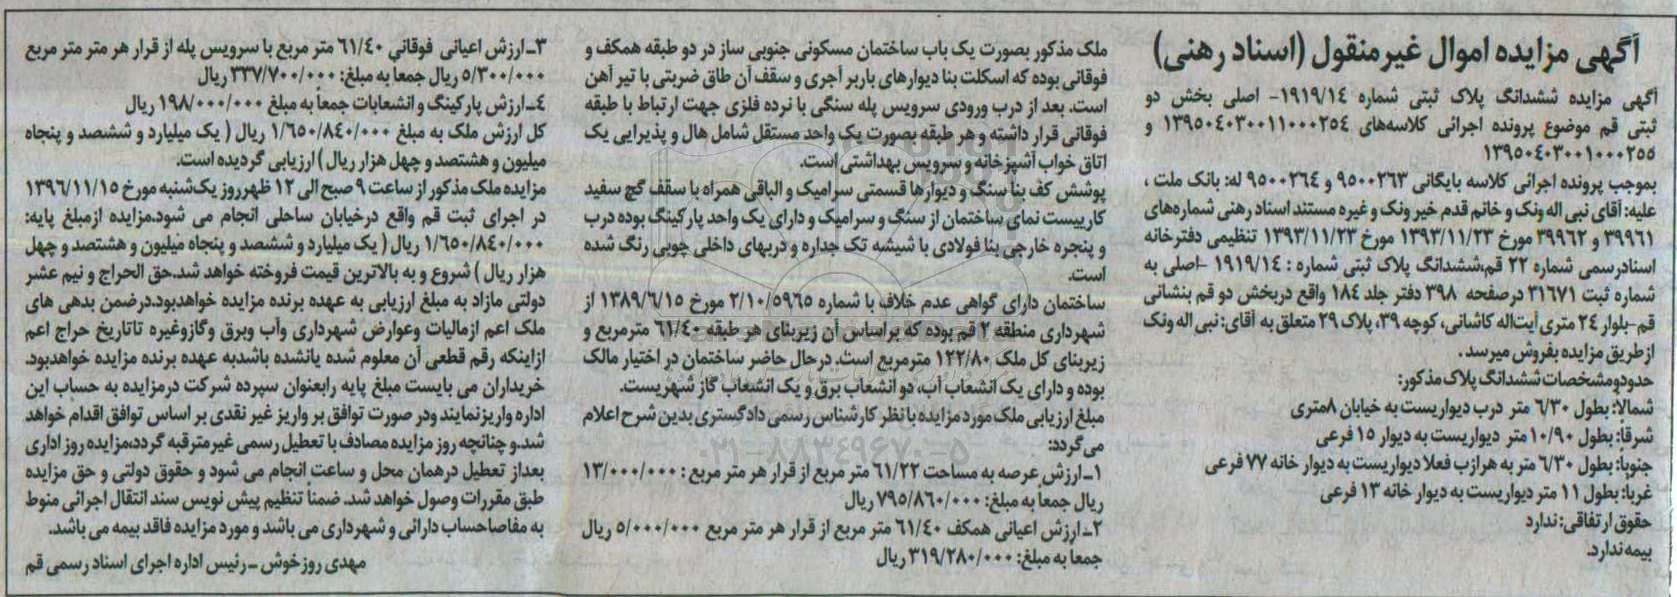 آگهی مزایده اموال غیرمنقول (اسناد رهنی)
آگهی مزایده ششدانگ پلاک ثبتی شماره ۱۹۱۹/۱٤- اصلی بخش دو
ثبتی قم موضوع پرونده اجرائی کلاسه‌های ۱۳۹۵۰٤۰۳۰۰۱۱۰۰۰۲۵٤ و
۱۳۹۵۰٤۰۳۰۰۱۰۰۰۲۵۵
بموجب پرونده اجرائی کلاسه بایگانی ۹۵۰۰۲٦۳ و ۹۵۰۰۲٦٤ له: بانک ملت ،
علیه: آقای نبی اله ونک و خانم قدم خیر ونک و غیره مستند اسناد رهنی شماره‌های
۳۹۹٦۱ و ۳۹۹٦۲ مورخ ۱۳۹۳/۱۱/۲۳ مورخ ۱۳۹۳/۱۱/۲۳ تنظیمی دفترخانه
اسنادرسمی شماره ۲۲ قم،ششدانگ پلاک ثبتی شماره : ۱۹۱۹/۱٤ -اصلی به
شماره ثبت ۳۱٦۷۱ درصفحه ۳۹۸ دفتر جلد ۱۸٤ واقع دربخش دو قم بنشانی
قم-بلوار ۲٤ متری آیت‌اله کاشانی، کوچه ۳۹، پلاک ۲۹ متعلق به آقای: نبی اله ونک
از طریق مزایده بفروش میرسد .
حدودومشخصات ششدانگ پلاک مذکور:
شمالاً: بطول ٦/۳۰ متر درب دیواریست به خیابان ۸متری
شرقاً: بطول ۱۰/۹۰ متر دیواریست به دیوار ۱۵ فرعی
جنوباً: بطول ٦/۳۰ متر به هرازب فعلا دیواریست به دیوار خانه ۷۷ فرعی
غرباً: بطول ۱۱ متر دیواریست به دیوار خانه ۱۳ فرعی
حقوق ارتفاقی: ندارد
بیمه ندارد.
ملک مذکور بصورت یک باب ساختمان مسکونی جنوبی ساز در دو طبقه همکف و
فوقانی بوده که اسکلت بنا دیوارهای باربر آجری و سقف آن طاق ضربتی با تیر آهن
است. بعد از درب ورودی سرویس پله سنگی با نرده فلزی جهت ارتباط با طبقه
فوقانی قرار داشته و هر طبقه بصورت یک واحد مستقل شامل هال و پذیرایی یک
اتاق خواب آشپزخانه و سرویس بهداشتی است.
پوشش کف بنا سنگ و دیوارها قسمتی سرامیک و الباقی همراه با سقف گچ سفید
کاریست نمای ساختمان از سنگ و سرامیک و دارای یک واحد پارکینگ بوده درب
و پنجره خارجی بنا فولادی با شیشه تک جداره و دربهای داخلی چوبی رنگ شده
است.
ساختمان دارای گواهی عدم خلاف با شماره ۲/۱۰/۵۹٦۵ مورخ ۱۳۸۹/٦/۱۵ از
شهرداری منطقه ۲ قم بوده که براساس آن زیربنای هر طبقه ٦۱/٤۰ مترمربع و
زیربنای کل ملک ۱۲۲/۸۰ مترمربع است. درحال حاضر ساختمان در اختیار مالک
بوده و دارای یک انشعاب آب، دو انشعاب برق و یک انشعاب گاز شهریست.
مبلغ ارزیابی ملک مورد مزایده با نظر کارشناس رسمی دادگستری بدین شرح اعلام
می گردد:
۱-ارزش عرصه به مساحت ٦۱/۲۲ متر مربع از قرار هر متر مربع : ۱۳/۰۰۰/۰۰۰
ریال جمعاً به مبلغ: ۷۹۵/۸٦۰/۰۰۰ ریال
۲-ارزش اعیانی همکف ٦۱/٤۰ متر مربع از قرار هر متر مربع ۵/۰۰۰/۰۰۰ ریال
جمعاً به مبلغ: ۳۱۹/۲۸۰/۰۰۰ ریال
۳-ارزش اعیانی فوقانی ٦۱/٤۰ متر مربع با سرویس پله از قرار هر متر متر مربع
۵/۳۰۰/۰۰۰ ریال جمعاً به مبلغ: ۳۳۷/۷۰۰/۰۰۰ ریال
٤-ارزش پارکینگ و انشعابات جمعاً به مبلغ ۱۹۸/۰۰۰/۰۰۰ ریال
کل ارزش ملک به مبلغ ۱/٦۵۰/۸٤۰/۰۰۰ ریال ( یک میلیارد و ششصد و پنجاه
میلیون و هشتصد و چهل هزار ریال ) ارزیابی گردیده است.
مزایده ملک مذکور از ساعت ۹ صبح الی ۱۲ ظهرروز یک‌شنبه مورخ ۱۳۹٦/۱۱/۱۵
در اجرای ثبت قم واقع درخیابان ساحلی انجام می شود.مزایده ازمبلغ پایه:
۱/٦۵۰/۸٤۰/۰۰۰ ریال ( یک میلیارد و ششصد و پنجاه میلیون و هشتصد و چهل
هزار ریال ) شروع و به بالاترین قیمت فروخته خواهد شد.حق الحراج و نیم عشر
دولتی مازاد به مبلغ ارزیابی به عهده برنده مزایده خواهدبود.درضمن بدهی های
ملک اعم ازمالیات وعوارض شهرداری وآب وبرق وگازوغیره تاتاریخ حراج اعم
ازاینکه رقم قطعی آن معلوم شده یانشده باشدبه عهده برنده مزایده خواهدبود.
خریداران می بایست مبلغ پایه رابعنوان سپرده شرکت درمزایده به حساب این
اداره واریزنمایند ودر صورت توافق بر واریز غیر نقدی بر اساس توافق اقدام خواهد
شد.و چنانچه روز مزایده مصادف با تعطیل رسمی غیرمترقبه گردد،مزایده روز اداری
بعداز تعطیل درهمان محل و ساعت انجام می شود و حقوق دولتی و حق مزایده
طبق مقررات وصول خواهد شد. ضمناً تنظیم پیش نویس سند انتقال اجرائی منوط
به مفاصاحساب دارائی و شهرداری می باشد و مورد مزایده فاقد بیمه می باشد.
مهدی روزخوش -رئیس اداره اجرای اسناد رسمی قم
۰۲۱-۸۸۳٤۹٦۷۰-۵